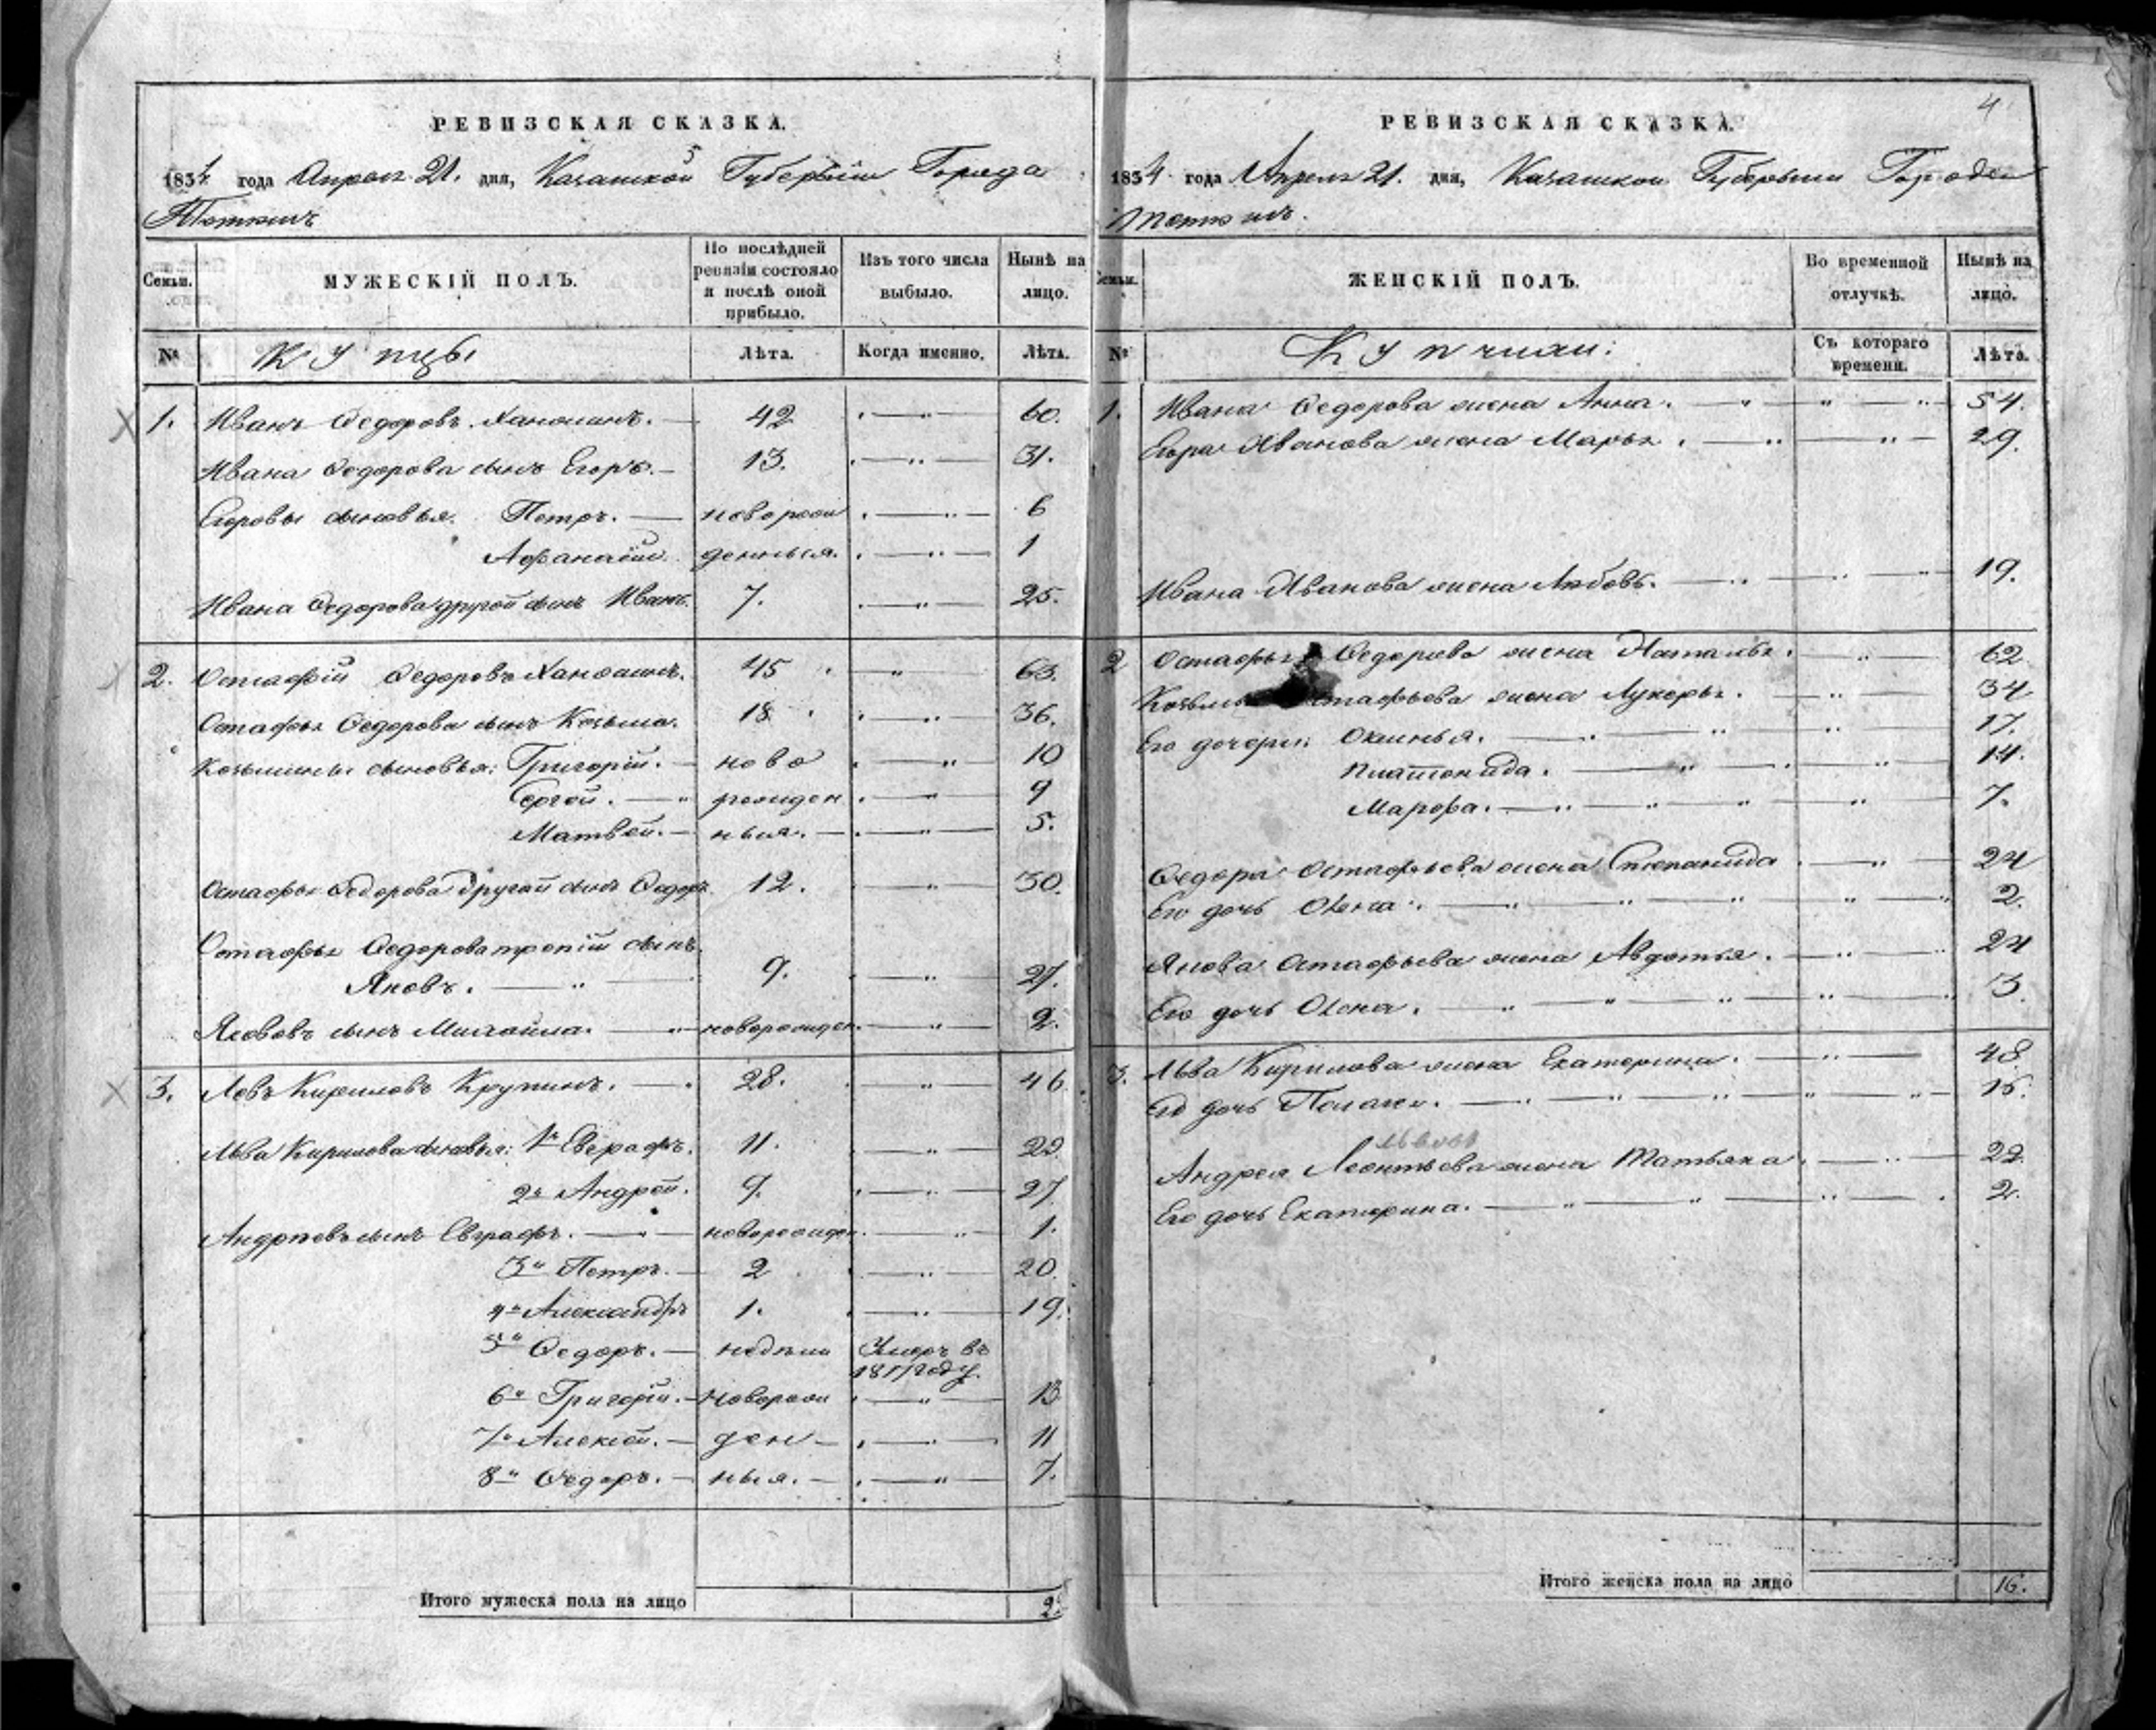 РЕВИЗСКАЯ СКАЗКА.
1834 года Апреля 21. дня, Казанской Губернии Города
Тетюшъ
Семьи.
МУЖЕСКІЙ ПОЛЪ.
По послѣдней ревизіи состояло и послѣ оной прибыло.
Изъ того числа выбыло.
Нынѣ на лицо.
№
Купцы
Лѣта.
Когда именно.
Лѣта.
1. Иванъ Ѳедоровъ 42 60.
Ивана Ѳедорова сынъ Егоръ. 13. 31.
Егоровы сыновья. Петръ. новорож 6
Афанасій. денныя. 1
Ивана Ѳедорова другой сынъ Иванъ. 7. 25.
2. Остафій Ѳедоровъ 45 63.
Остафья Ѳедорова сынъ Козьма. 18 36.
Козьмины сыновья: Григорій. ново 10
Сергей. рожден 9
Матвей. ныя. 5.
Остафья Ѳедорова другой сынъ Ѳедоръ. 12. 30.
Остафья Ѳедорова третій сынъ
Яковъ. 9. 27.
Яковъ сынъ Михайла. новорожден. 2.
3. Левъ Кириловъ Крупинъ. 28. 46.
Льва Кирилова сыновья: 1й Евграфъ. 11. 29
2й Андрей. 9. 27
Андреевъ сынъ Евграфъ. новорожден. 1.
3й Петръ. 2 20.
4й Александръ 1. 19.
5й Ѳедоръ. недели Умеръ въ
году.
6й Григорій. Новорож 13
7й Алексей. ден 11
8й Ѳедоръ. ныя. 7.
Итого мужеска пола на лицо
4
РЕВИЗСКАЯ СКАЗКА.
1834 года Апреля 21. дня, Казанской Губернии Города
Тетюшъ.
Семьи.
ЖЕНСКІЙ ПОЛЪ.
Во временной отлучкѣ.
Нынѣ на лицо.
№
Купчихи:
Съ котораго времени.
Лѣта.
1. Ивана Ѳедорова жена Анна. 54.
Егора Иванова жена Марья. 29.
Ивана Иванова жена Любовь. 19.
2 Остафья Ѳедорова жена Наталья. 62
Козьмы Остафьева жена Лукерья. 34
Его дочери: Оксинья. 17.
Платонида. 14.
Марфа. 7.
Ѳедора Остафьева жена Степанида 24
Его дочь Олена. 2.
Якова Остафьева жена Авдотья. 24
Его дочь Олена. 3.
3. Льва Кирилова жена Екатерина. 48
Его дочь Пелагея. 15.
Львова
Андрея Леонтьева жена Татьяна. 22.
Его дочь Екатерина. 2.
Итого женска пола на лицо 16.